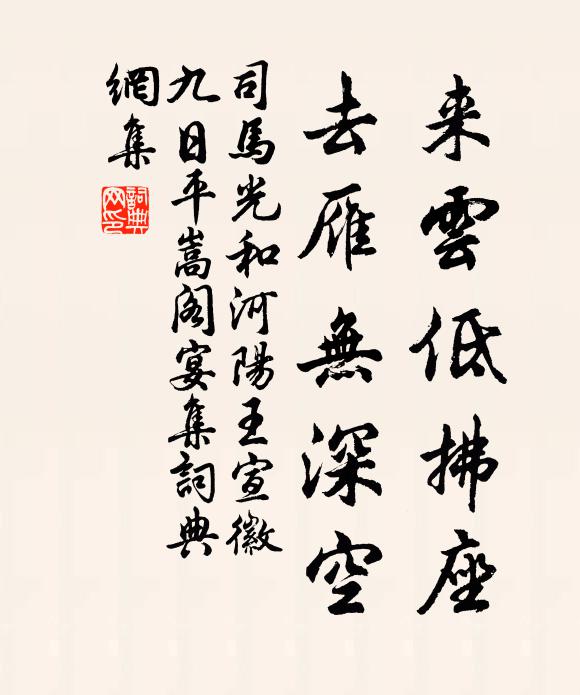 来雲低拂座
去雁無深空
司馬光和河陽王宣徽
九日平嵩阁宴集詞典
網集
詞典
网印